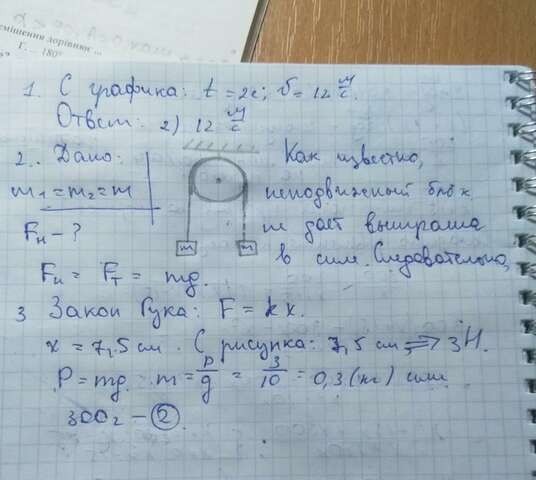 еміщення дорівнює ...
Г. ... 180°
1. С графика: t = 2с; υ = 12 м/с.
Ответ: 2) 12 м/с
2.. Дано:
m₁ = m₂ = m
Fн - ?
Fн = Fт = mg.
m
m
Как известно,
неподвижный блок
не даёт выигрыша
в силе. Следовательно,
3 Закон Гука: F = kx.
x = 7,5 см. С рисунка: 7,5 см => 3Н.
P = mg. m = P/g = 3/10 = 0,3 (кг) или
300г - ②